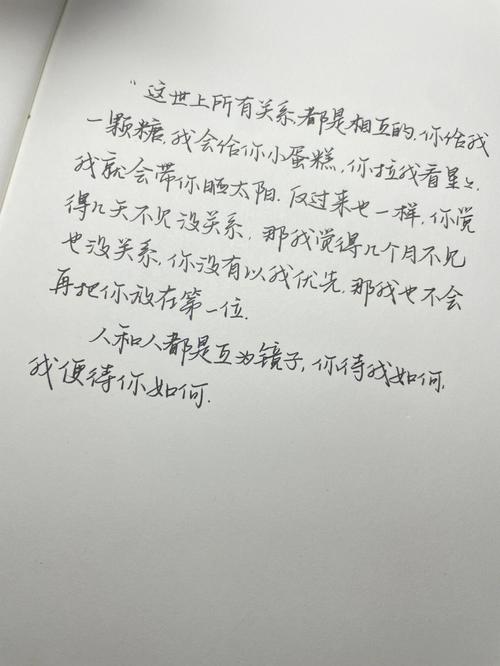 “这世上所有关系都是相互的.你给我
一颗糖,我会给你小蛋糕,你拉我看星星,
我就会带你晒太阳.反过来也一样,你觉
得几天不见没关系,那我觉得几个月不见
也没关系,你没有以我优先,那我也不会
再把你放在第一位.
人和人都是互为镜子,你待我如何,
我便待你如何.